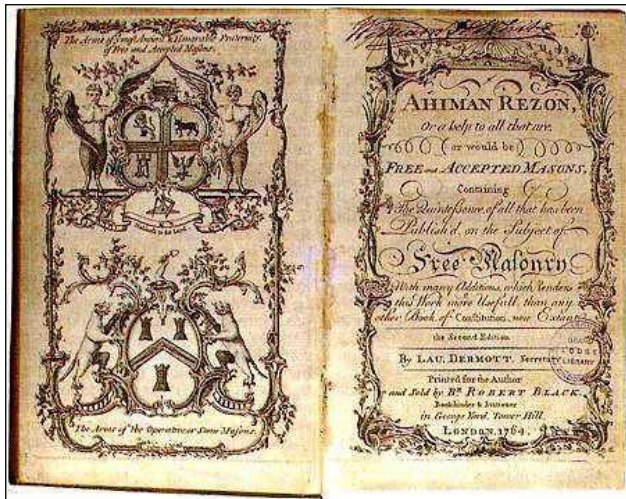 The Arms of ye most Ancient & Honorable Fraternity,
of Free and Accepted Masons.
The Arms of the Operative or Stone Masons.
AHIMAN REZON,
Or a help to all that are,
or would be
FREE and ACCEPTED MASONS,
Containing
The Quintessence of all that has been
Publish'd on the Subject of
Free Masonry
With many Additions, which Renders
this Work more Usefull, than any
other Book of Constitution, now Extant.
the Second Edition
By LAU. DERMOTT. Secretary
LODGE
LIBRARY
Printed for the Author
and Sold by Br. ROBERT BLACK.
Bookbinder & Stationer
in George Yard, Tower Hill.
LONDON, 1764.